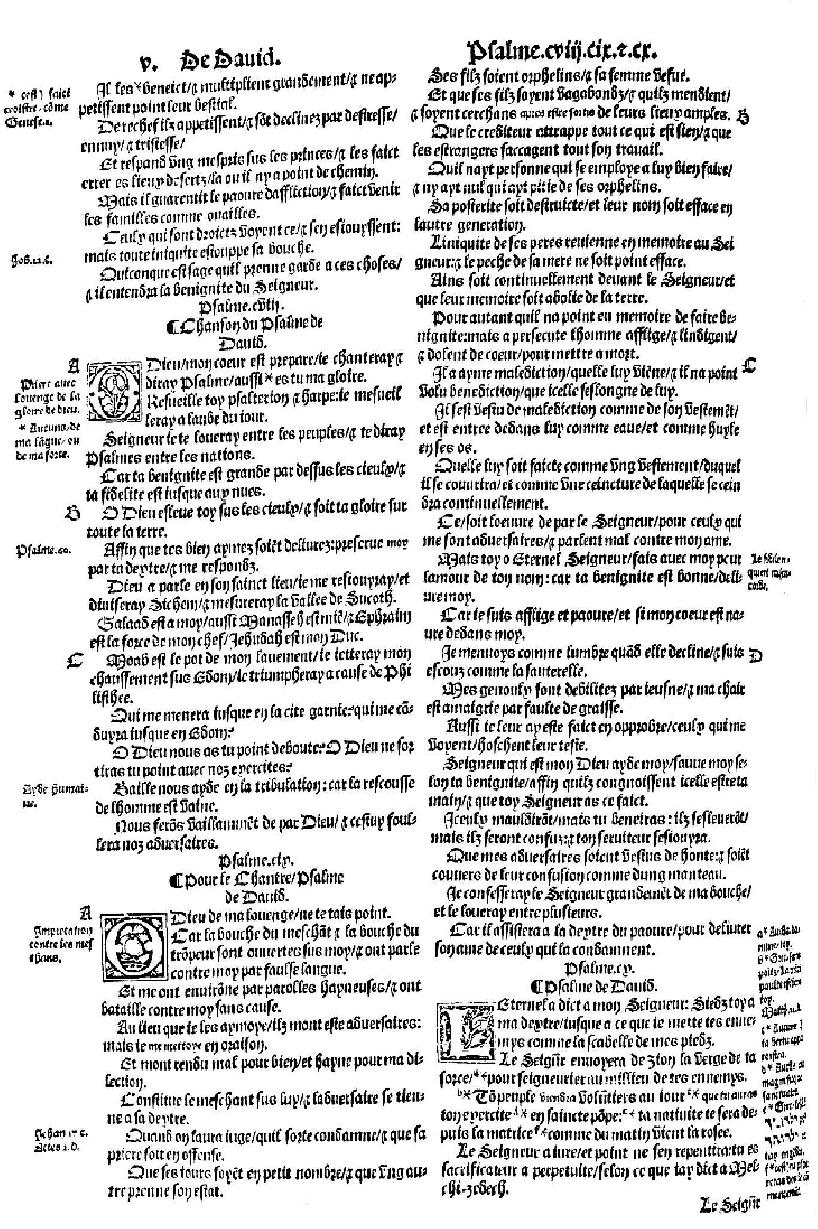 v. De David.
Il les * beneict/& multiplient grandement/& ne ap-
petissent point leur bestial.
Derechef ilz appetissent/& sōt declinez par destresse/
ennuy/& tristesse/
Et respand vng mespris sus les princes/& les faict
errer es lieux desertz/la ou il ny a point de chemin.
Mais il guarentit le paoure daffliction/& faict venir
les familles comme ouailles.
Ceulx qui sont droictz voyent ce/& sen esiouyssent:
mais toute iniquite estouppe sa bouche.
Quiconque est sage quil prenne garde a ces choses/
& il entendra la benignite du Seigneur.
Psalme.cviij.
¶Chanson du Psalme de
David.
O Dieu/mon coeur est prepare/ie chanteray &
diray Psalme/aussi * es tu ma gloire.
Resueille toy psalterion & harpe: ie mesueil
leray a laube du iour.
Seigneur ie te loueray entre les peuples/& te diray
Psalmes entre les nations.
Car ta benignite est grande par dessus les cieulx/&
ta fidelite est iusque aux nues.
O Dieu esleue toy sus les cieulx/& soit ta gloire sur
toute la terre.
Affin que tes bien aymez soiēt deliurez: preserue moy
par ta dextre/& me respondz.
Dieu a parle en son sainct lieu/ie me resiouyray/et
diuiseray Sichem/& mesureray la vallee de Sucoth.
Galaad est a moy/aussi Manasseh est miē/& Ephraim
est la force de mon chef/Jehudah est mon Duc.
Moab est le pot de mon lauement/ie ietteray mon
chaussement sus Edom/ie triumpheray a cause de Phi
listhee.
Qui me menera iusque en la cite garnie: qui me cō-
duyra iusque en Edom?
O Dieu nous as tu point deboute? O Dieu ne sor
tiras tu point auec noz exercites?
Baille nous ayde en la tribulation: car la rescousse
de lhomme est vaine.
Nous ferōs vaillammēt de par Dieu/& cestuy foul-
lera noz aduersaires.
Psalme.cix.
¶Pour le Chantre/Psalme
de David.
O Dieu de ma louenge/ne te tais point.
Car la bouche du meschāt & la bouche du
trōpeur sont ouuertes sus moy/& ont parle
contre moy par faulse langue.
Et me ont enuirōne par parolles hayneuses/& ont
bataille contre moy sans cause.
Au lieu que ie les aymoye/ilz mont este aduersaires:
mais ie me mettoye en oraison.
Et mont rendu mal pour bien/et hayne pour ma di-
lection.
Constitue le meschant sus luy/& laduersaire se tien-
ne a sa dextre.
Quand on laura iuge/quil sorte condamne/& que sa
priere soit en offense.
Que ses iours soyēt en petit nombre/& que vng au-
tre prenne son estat.
* cest/ faict
croistre. cōme
Genese.1.
Job.12.d.
A
Priere auec
louenge de la
gloire de dieu.
* Aucuns/de
ma lāgue. ou
de ma sorte.
B
Psalme.60.
C
Ayde humai-
ne.
A
Imprecation
contre les mes
chans.
Jehan 17.c.
Actes 1.d.
Psalme.cviij.cix.& cx.
Ses filz soient orphelins/& sa femme vefue.
Et que ses filz soyent vagabondz/& quilz mendient/
& soyent cerchans apres estre sortis de leurs lieux amples.
Que le crediteur attrappe tout ce qui est sien/& que
les estrangers saccagent tout son trauail.
Quil nayt personne qui se employe a luy bien faire/
& ny ayt nul qui ayt pitie de ses orphelins.
Sa posterite soit destruicte/et leur nom soit efface en
lautre generation.
Liniquite de ses peres reuienne en memoire au Sei
gneur: & le peche de sa mere ne soit point efface.
Ains soit continuellement deuant le Seigneur/et
que leur memoire soit abolie de la terre.
Pour autant quil na point eu memoire de faire be-
nignite: mais a persecute lhomme afflige/& lindigent/
& dolent de coeur/pour mettre a mort.
Il a ayme malediction/quelle luy viēne/& il na point
volu benediction/que icelle seslongne de luy.
Il sest vestu de malediction comme de son vestemēt/
et est entree dedans luy comme eaue/et comme huyle
en ses os.
Quelle luy soit faicte comme vng vestement/duquel
il se couurira/et comme vne ceincture de laquelle se cein
dra continuellement.
Ce/soit loeuure de par le Seigneur/pour ceulx qui
me sont aduersaires/& parlent mal contre mon ame.
Mais toy o Eternel Seigneur/fais auec moy pour
lamour de ton nom: car ta benignite est bonne/deli-
ure moy.
Car ie suis afflige et paoure/et si mon coeur est na-
ure dedans moy.
Je men voys comme lumbre quād elle decline/& suis
escoux comme la sauterelle.
Mes genoulx sont debilitez par ieusne/& ma chair
est amaigrie par faulte de graisse.
Aussi ie leur ay este faict en opprobre/ceulx qui me
voyent/hoschent leur teste.
Seigneur qui est mon Dieu ayde moy/sauue moy se-
lon ta benignite/affin quilz congnoissent icelle estre ta
main/& que toy Seigneur as ce faict.
Iceulx mauldirōt/mais tu beneiras: ilz sesleuerōt/
mais ilz seront confuz: & ton seruiteur sesiouyra.
Que mes aduersaires soient vestus de honte: & soiēt
couuers de leur confusion comme dung manteau.
Je confesseray le Seigneur grandemēt de ma bouche/
et le loueray entre plusieurs.
Car il assistera a la dextre du paoure/pour deliurer
son ame de ceulx qui la condamnent.
Psalme.cx.
¶Psalme de David.
L Eternel a dict a mon Seigneur: Siedz toy a
ma dextre/iusque a ce que ie mette tes enne-
mys comme la scabelle de mes piedz.
Le Seignr̄ enuoyera de Zion la verge de ta
force/ * pour seigneurier au millieu de tes ennemys.
b* Tō peuple viendra volūtiers au iour * que tu auras
ton exercite d* en saincte pōpe: e* ta natiuite te sera de-
puis la matrice f* comme du matin vient la rosee.
Le Seigneur a iure/et point ne sen repentira: tu es
sacrificateur a perpetuite/selon ce que iay dict a Mel-
chi-zedech.
Le Seignr̄
B
C
D